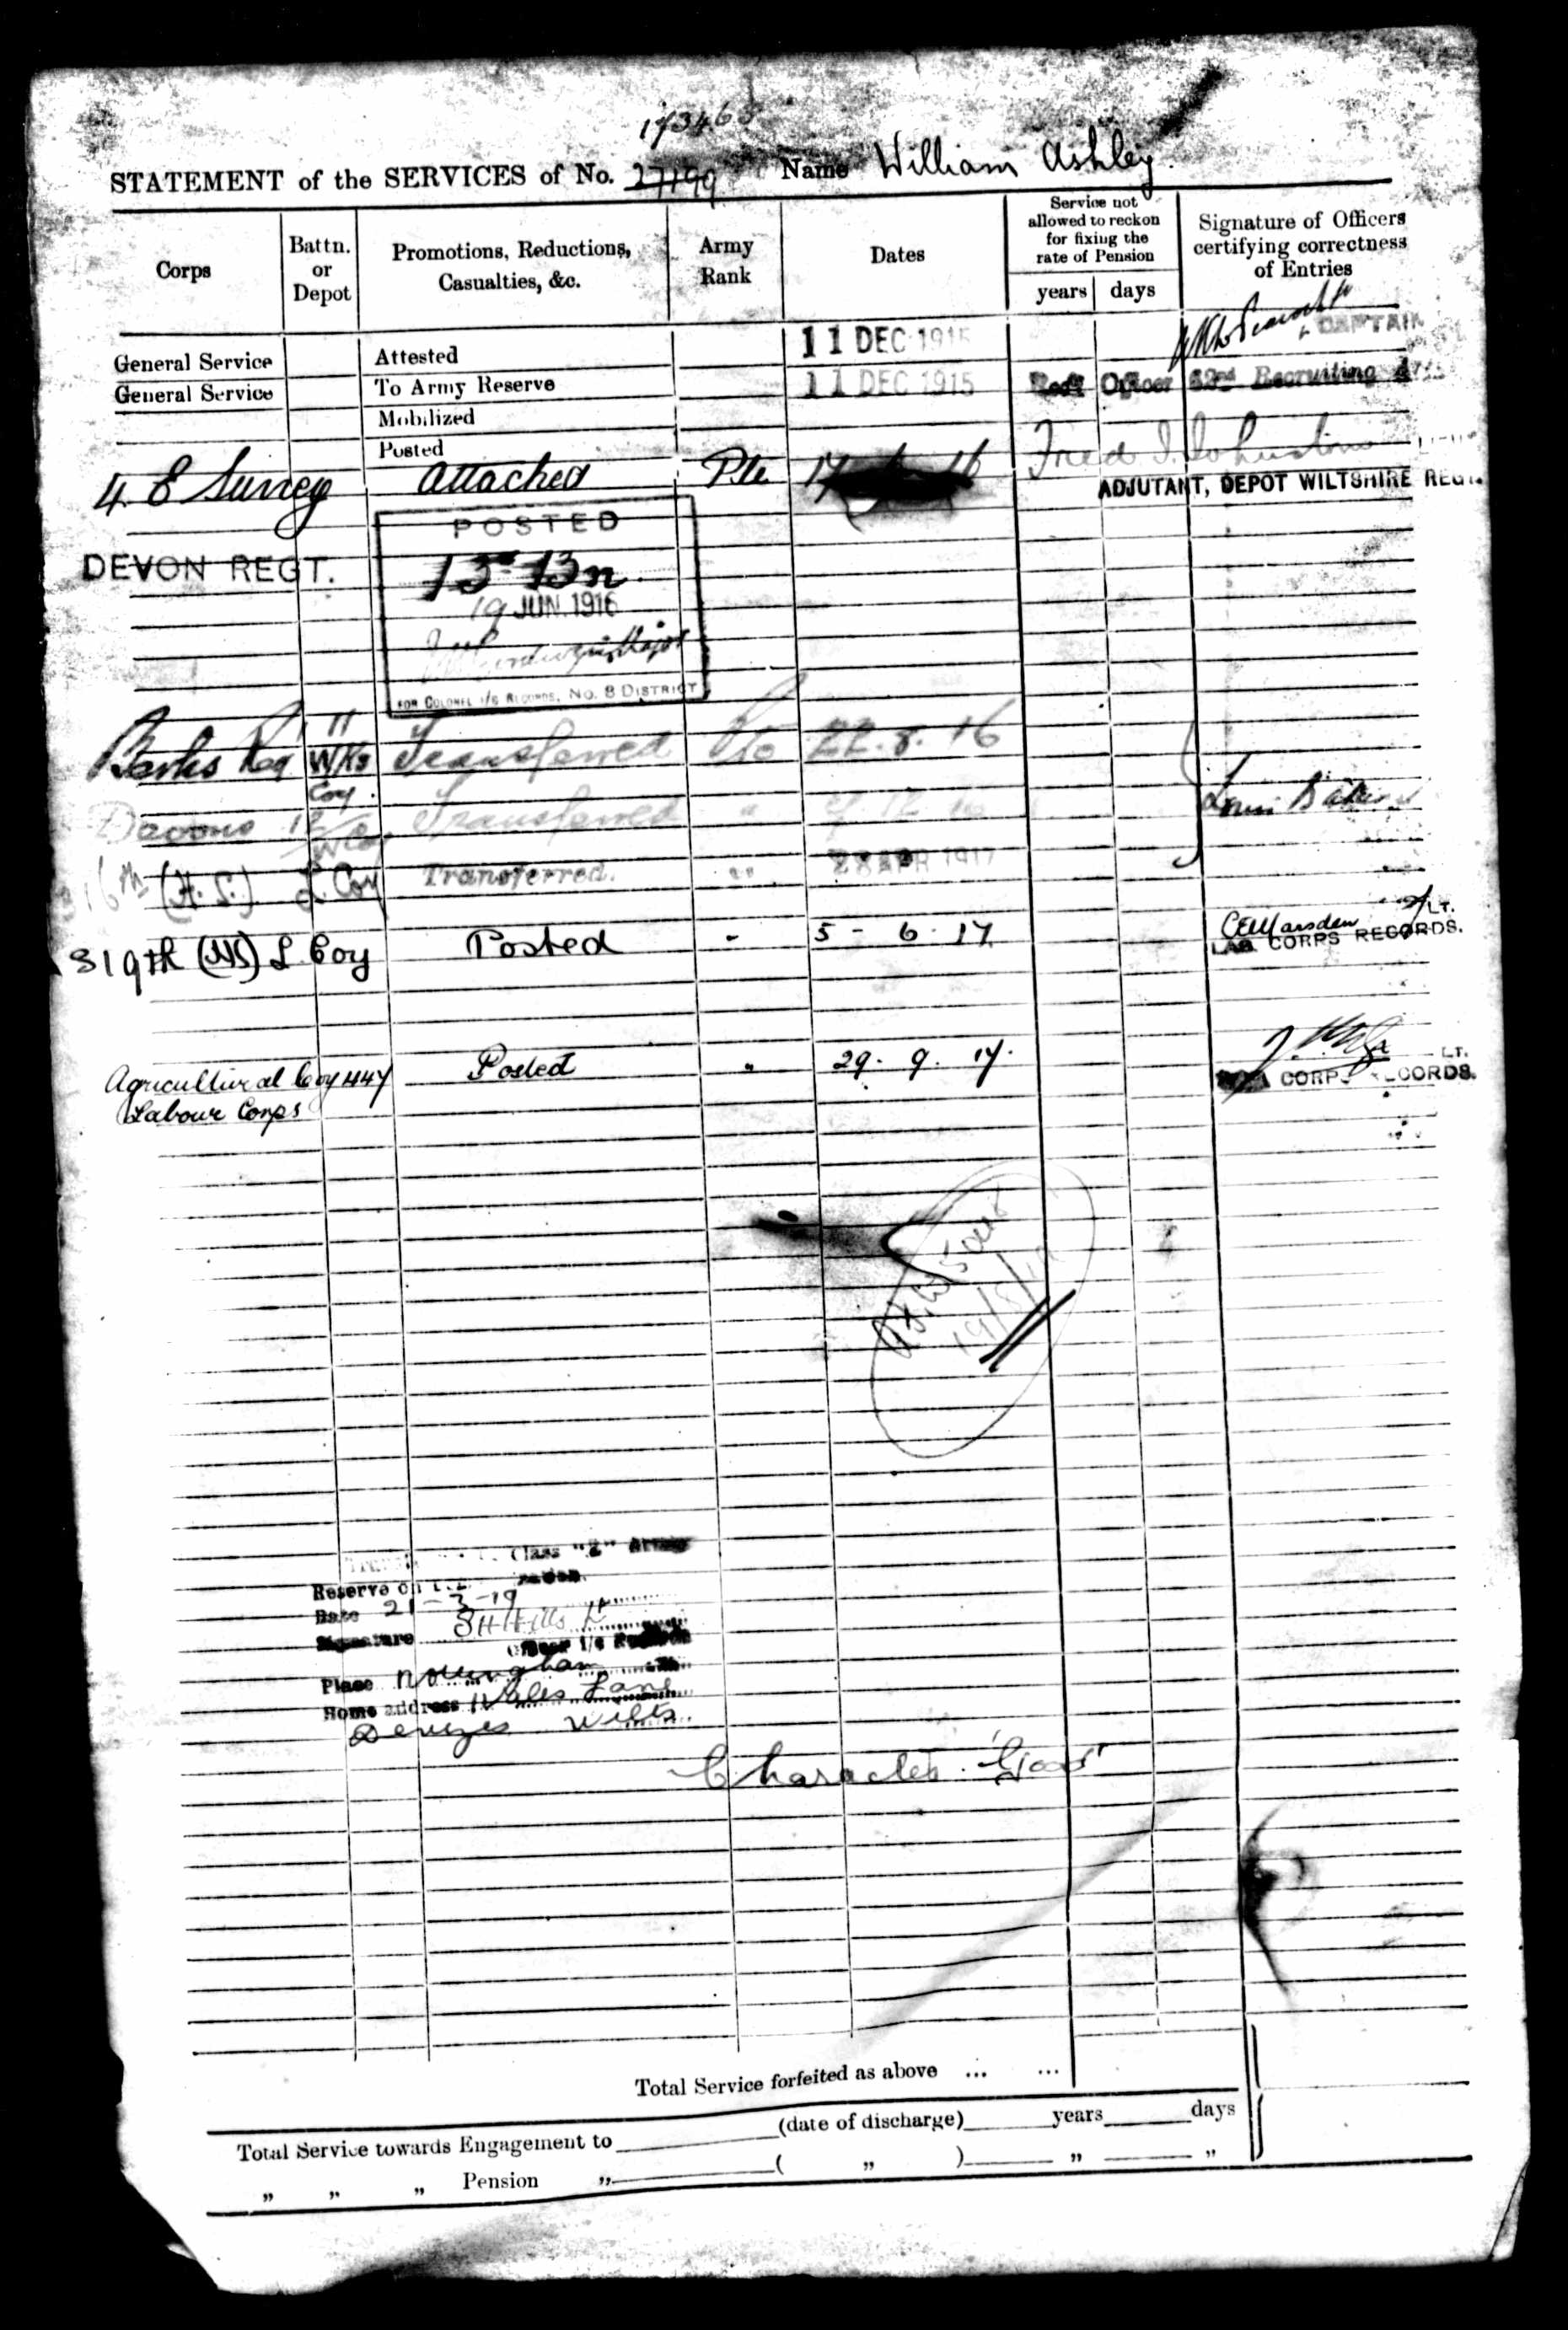 173465
STATEMENT of the SERVICES of No. 27199 Name William Ashley.
Corps
Battn. or Depot
Promotions, Reductions, Casualties, &c.
Army Rank
Dates
Service not allowed to reckon for fixing the rate of Pension
years days
Signature of Officers certifying correctness of Entries
General Service Attested 11 DEC 1915 CAPTAIN
General Service To Army Reserve 11 DEC 1915 Officer 62nd Recruiting
Mobilized
Posted
4. E Surrey Attached Pte 17 16 Fred Johnston
ADJUTANT, DEPOT WILTSHIRE REGT.
DEVON REGT.
POSTED
13th Bn.
19 JUN. 1916
Major
FOR COLONEL i/c RECORDS, No. 8 DISTRICT
Berks Reg 11 Wks Coy. Transferred Pte 22. 8. 16
Devons 12 W Coy. Transferred " 9 12 16
316th (H. S.) L. Coy Transferred. " 28 APR 1917
319th (HS) L. Coy Posted " 5 - 6 - 17 CE Marsden LT.
LAB. CORPS RECORDS.
Agricultural Coy 447 Posted " 29 - 9. 17. LT.
Labour Corps CORPS RECORDS.
Class "Z" Army
Reserve on
Date 21-3-19
Signature S H Hills Lt
Officer i/c Records
Place Nottingham
Home address Wales Lane
Devizes Wilts
Character. 'Good'
Total Service forfeited as above ... ...
Total Service towards Engagement to (date of discharge) years days
" " " Pension " ( " ) " "